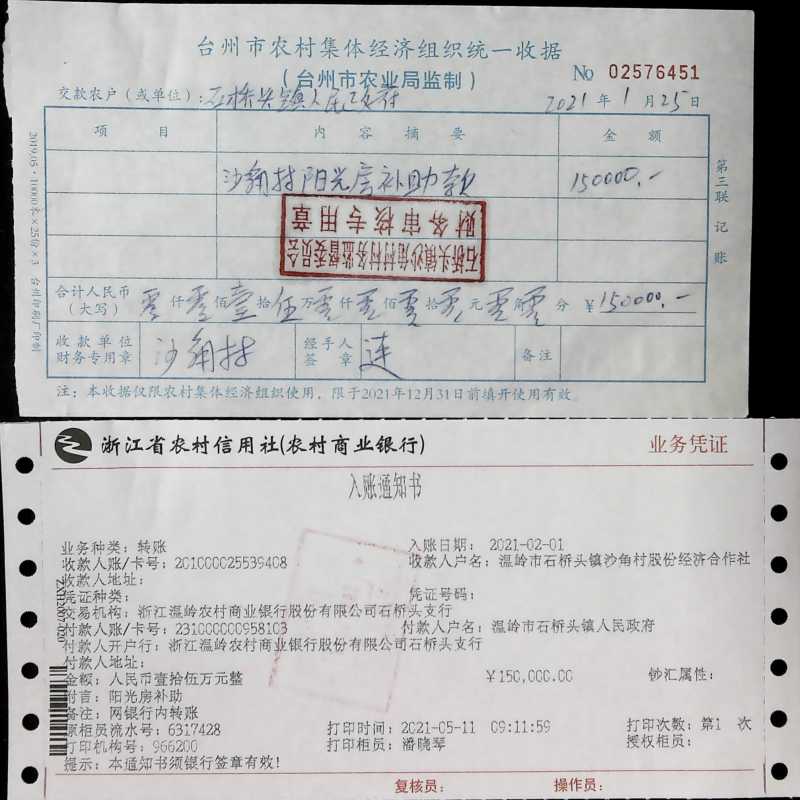 台州市农村集体经济组织统一收据
（台州市农业局监制）
No 02576451
交款农户（或单位）：石桥头镇人民政府 2021年1月25日
项目 内容摘要 金额
沙角村阳光房补助款 150000.-
石桥头镇沙角村村务监督委员会
财务审核专用章
合计人民币（大写） 零仟零佰壹拾伍万零仟零佰零拾零元零角零分 ￥150000.-
收款单位财务专用章 沙角村 经手人签章 连 备注
注：本收据仅限农村集体经济组织使用，限于2021年12月31日前填开使用有效。
第三联 记账
2019.05·10000本×25份×3 台州印刷厂印制
浙江省农村信用社(农村商业银行) 业务凭证
入账通知书
业务种类：转账 入账日期：2021-02-01
收款人账/卡号：201000025539408 收款人户名：温岭市石桥头镇沙角村股份经济合作社
收款人地址：
凭证种类： 凭证号码：
交易机构：浙江温岭农村商业银行股份有限公司石桥头支行
付款人账/卡号：231000000958103 付款人户名：温岭市石桥头镇人民政府
付款人开户行：浙江温岭农村商业银行股份有限公司石桥头支行
付款人地址：
金额：人民币壹拾伍万元整 ￥150,000.00 钞汇属性：
附言：阳光房补助
备注：网银行内转账
原柜员流水号：6317428 打印时间：2021-05-11 09:11:59 打印次数：第1 次
打印机构号：966200 打印柜员：潘晓琴 授权柜员：
提示：本通知书须银行签章有效！
复核员： 操作员：